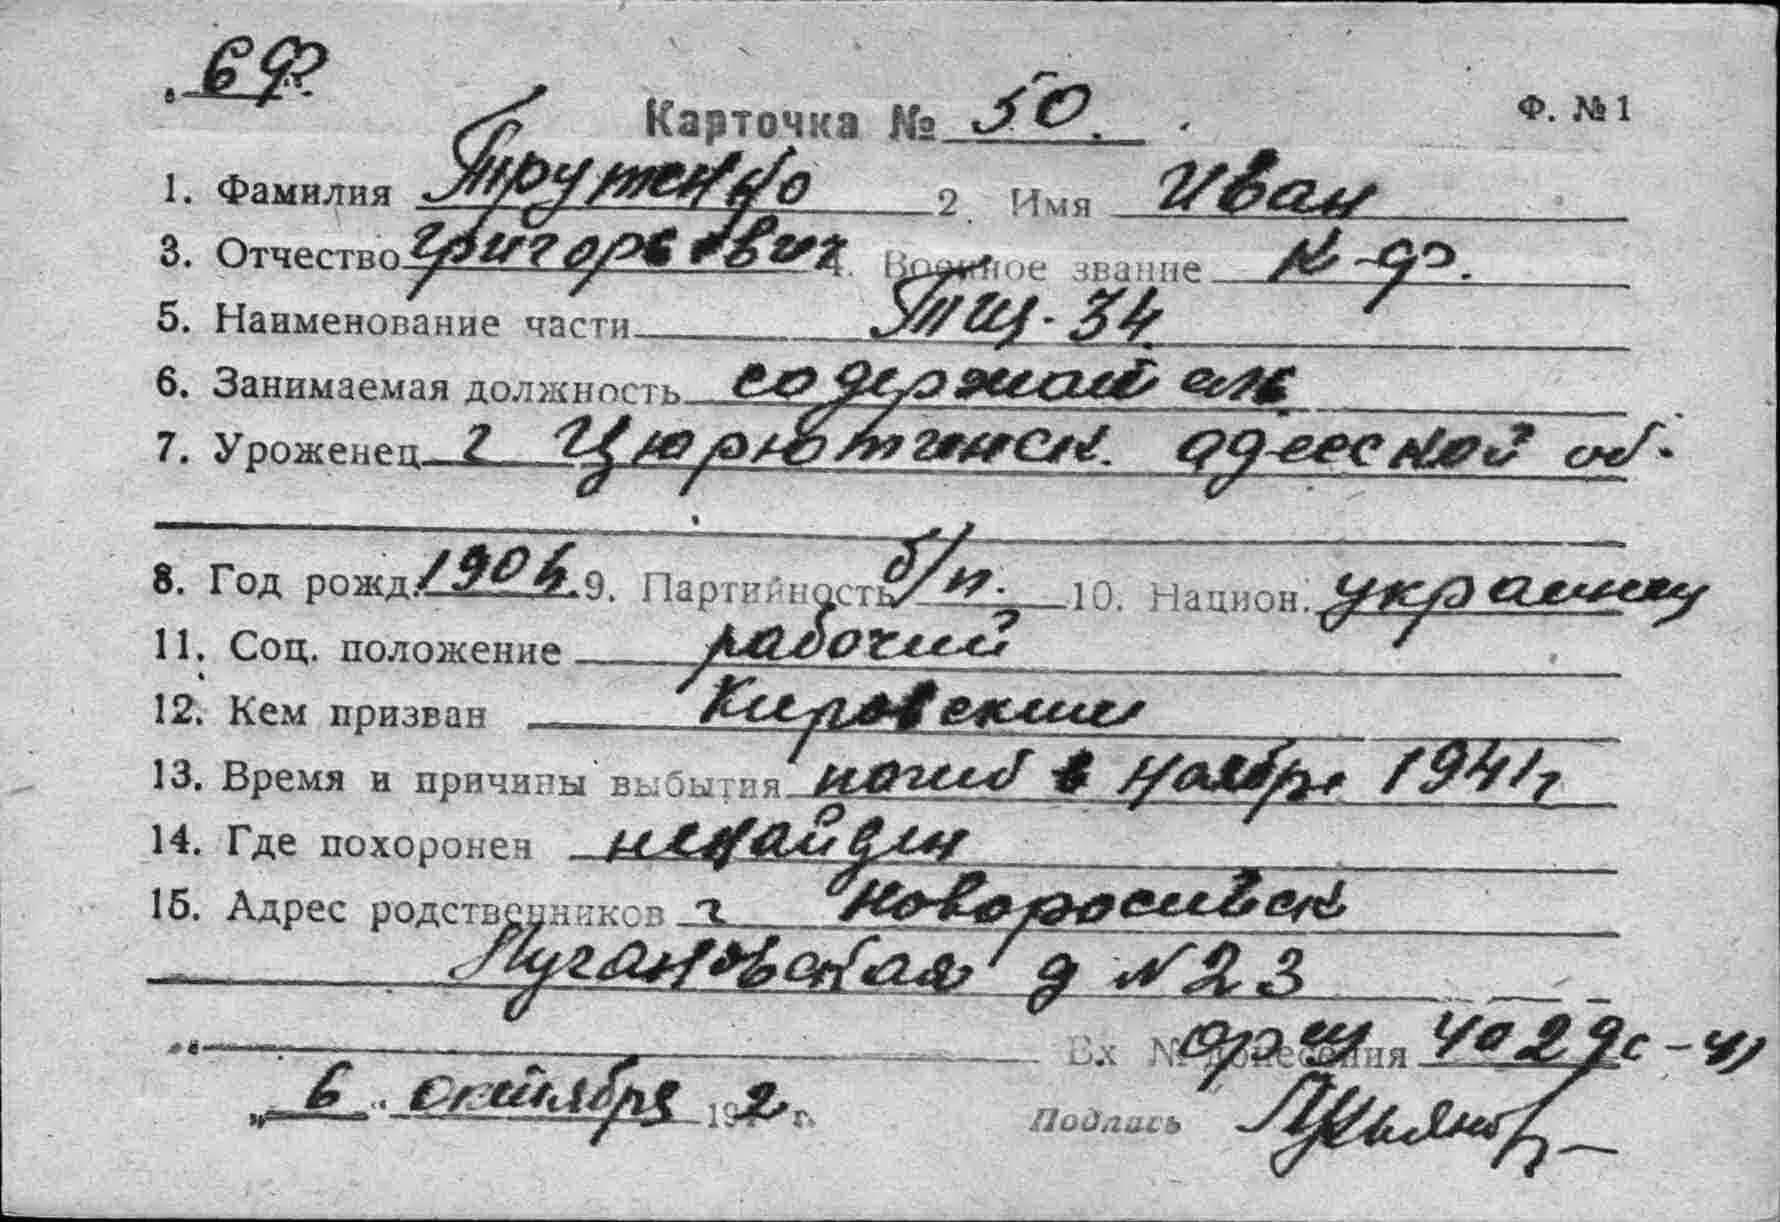 Карточка № 50.
Ф. № 1
1. Фамилия Трутенко 2. Имя Иван
3. Отчество григорьевич 4. Военное звание к-ф.
5. Наименование части Тщ-34
6. Занимаемая должность содержатель
7. Уроженец г Цюрютинск. адесской об.
8. Год рожд. 1904. 9. Партийность б/п. 10. Национ. украинец
11. Соц. положение рабочий
12. Кем призван Кировским
13. Время и причины выбытия погиб в ноябре 1941г
14. Где похоронен ненайден
15. Адрес родственников г новоросийск
д N 23
Вх № донесения 4029с-41
„6“ октября 1942 г. Подпись